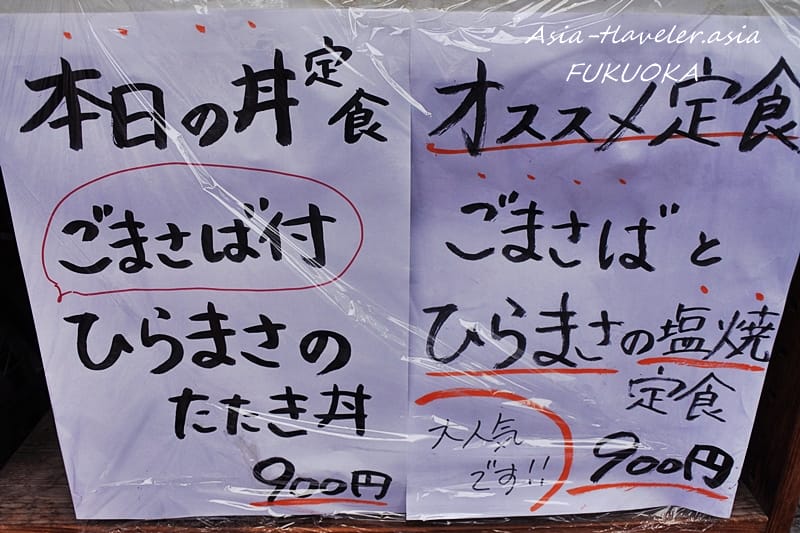 Asia-Traveler.asia
FUKUOKA
本日の丼定食
ごまさば付
ひらまさの
たたき丼
900円
オススメ定食
ごまさばと
ひらまさの塩焼
定食
大人気
です!!
900円